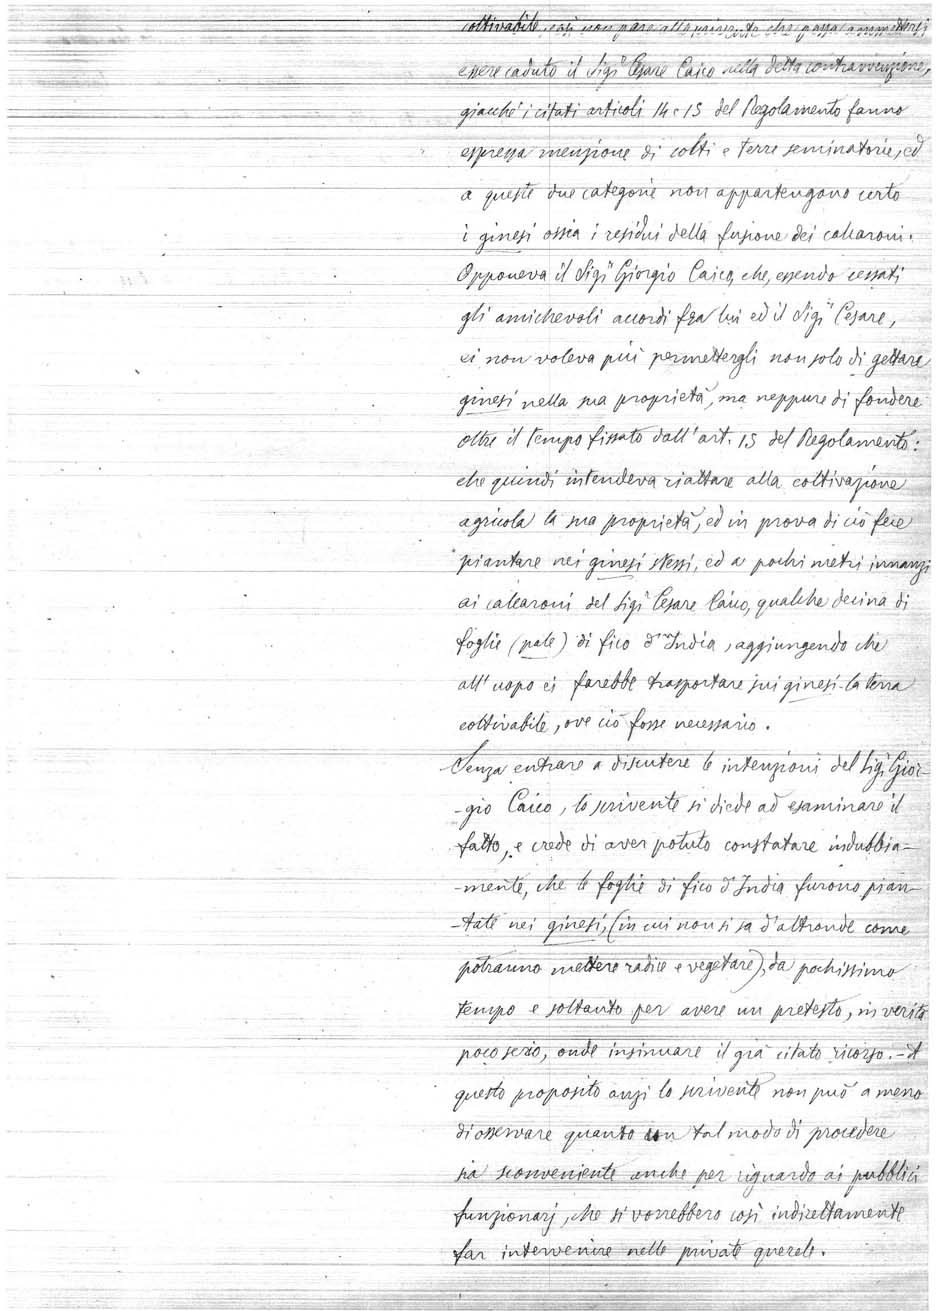 coltivabile, così non pare allo scrivente che possa ammettersi
essere caduto il Sig.r Cesare Caico nella detta contravvenzione,
giacché i citati articoli 14 e 15 del Regolamento fanno
espressa menzione di colti e terre seminatorie, ed
a queste due categorie non appartengono certo
i ginesi ossia i residui della fusione dei calcaroni.
Opponeva il Sig.r Giorgio Caico, che, essendo cessati
gli amichevoli accordi fra lui ed il Sig.r Cesare,
ei non voleva più permettergli non solo di gettare
ginesi nella sua proprietà, ma neppure di fondere
oltre il tempo fissato dall'art. 15 del Regolamento:
che quindi intendeva riattare alla coltivazione
agricola la sua proprietà, ed in prova di ciò fece
piantare nei ginesi stessi, ed a pochi metri innanzi
ai calcaroni del Sig.r Cesare Caico, qualche decina di
foglie (pale) di fico d'India, aggiungendo che
all'uopo ei farebbe trasportare sui ginesi la terra
coltivabile, ove ciò fosse necessario.
Senza entrare a discutere le intenzioni del Sig.r Gior-
-gio Caico, lo scrivente si diede ad esaminare il
fatto, e crede di aver potuto constatare indubbia-
-mente, che le foglie di fico d'India furono pian-
-tate nei ginesi, (in cui non si sa d'altronde come
potranno mettere radice e vegetare), da pochissimo
tempo e soltanto per avere un pretesto, in verità
poco serio, onde insinuare il già citato ricorso. - A
questo proposito anzi lo scrivente non può a meno
di osservare quanto un tal modo di procedere
sia sconveniente anche per riguardo ai pubblici
funzionarj, che si vorrebbero così indirettamente
far intervenire nelle private querele.